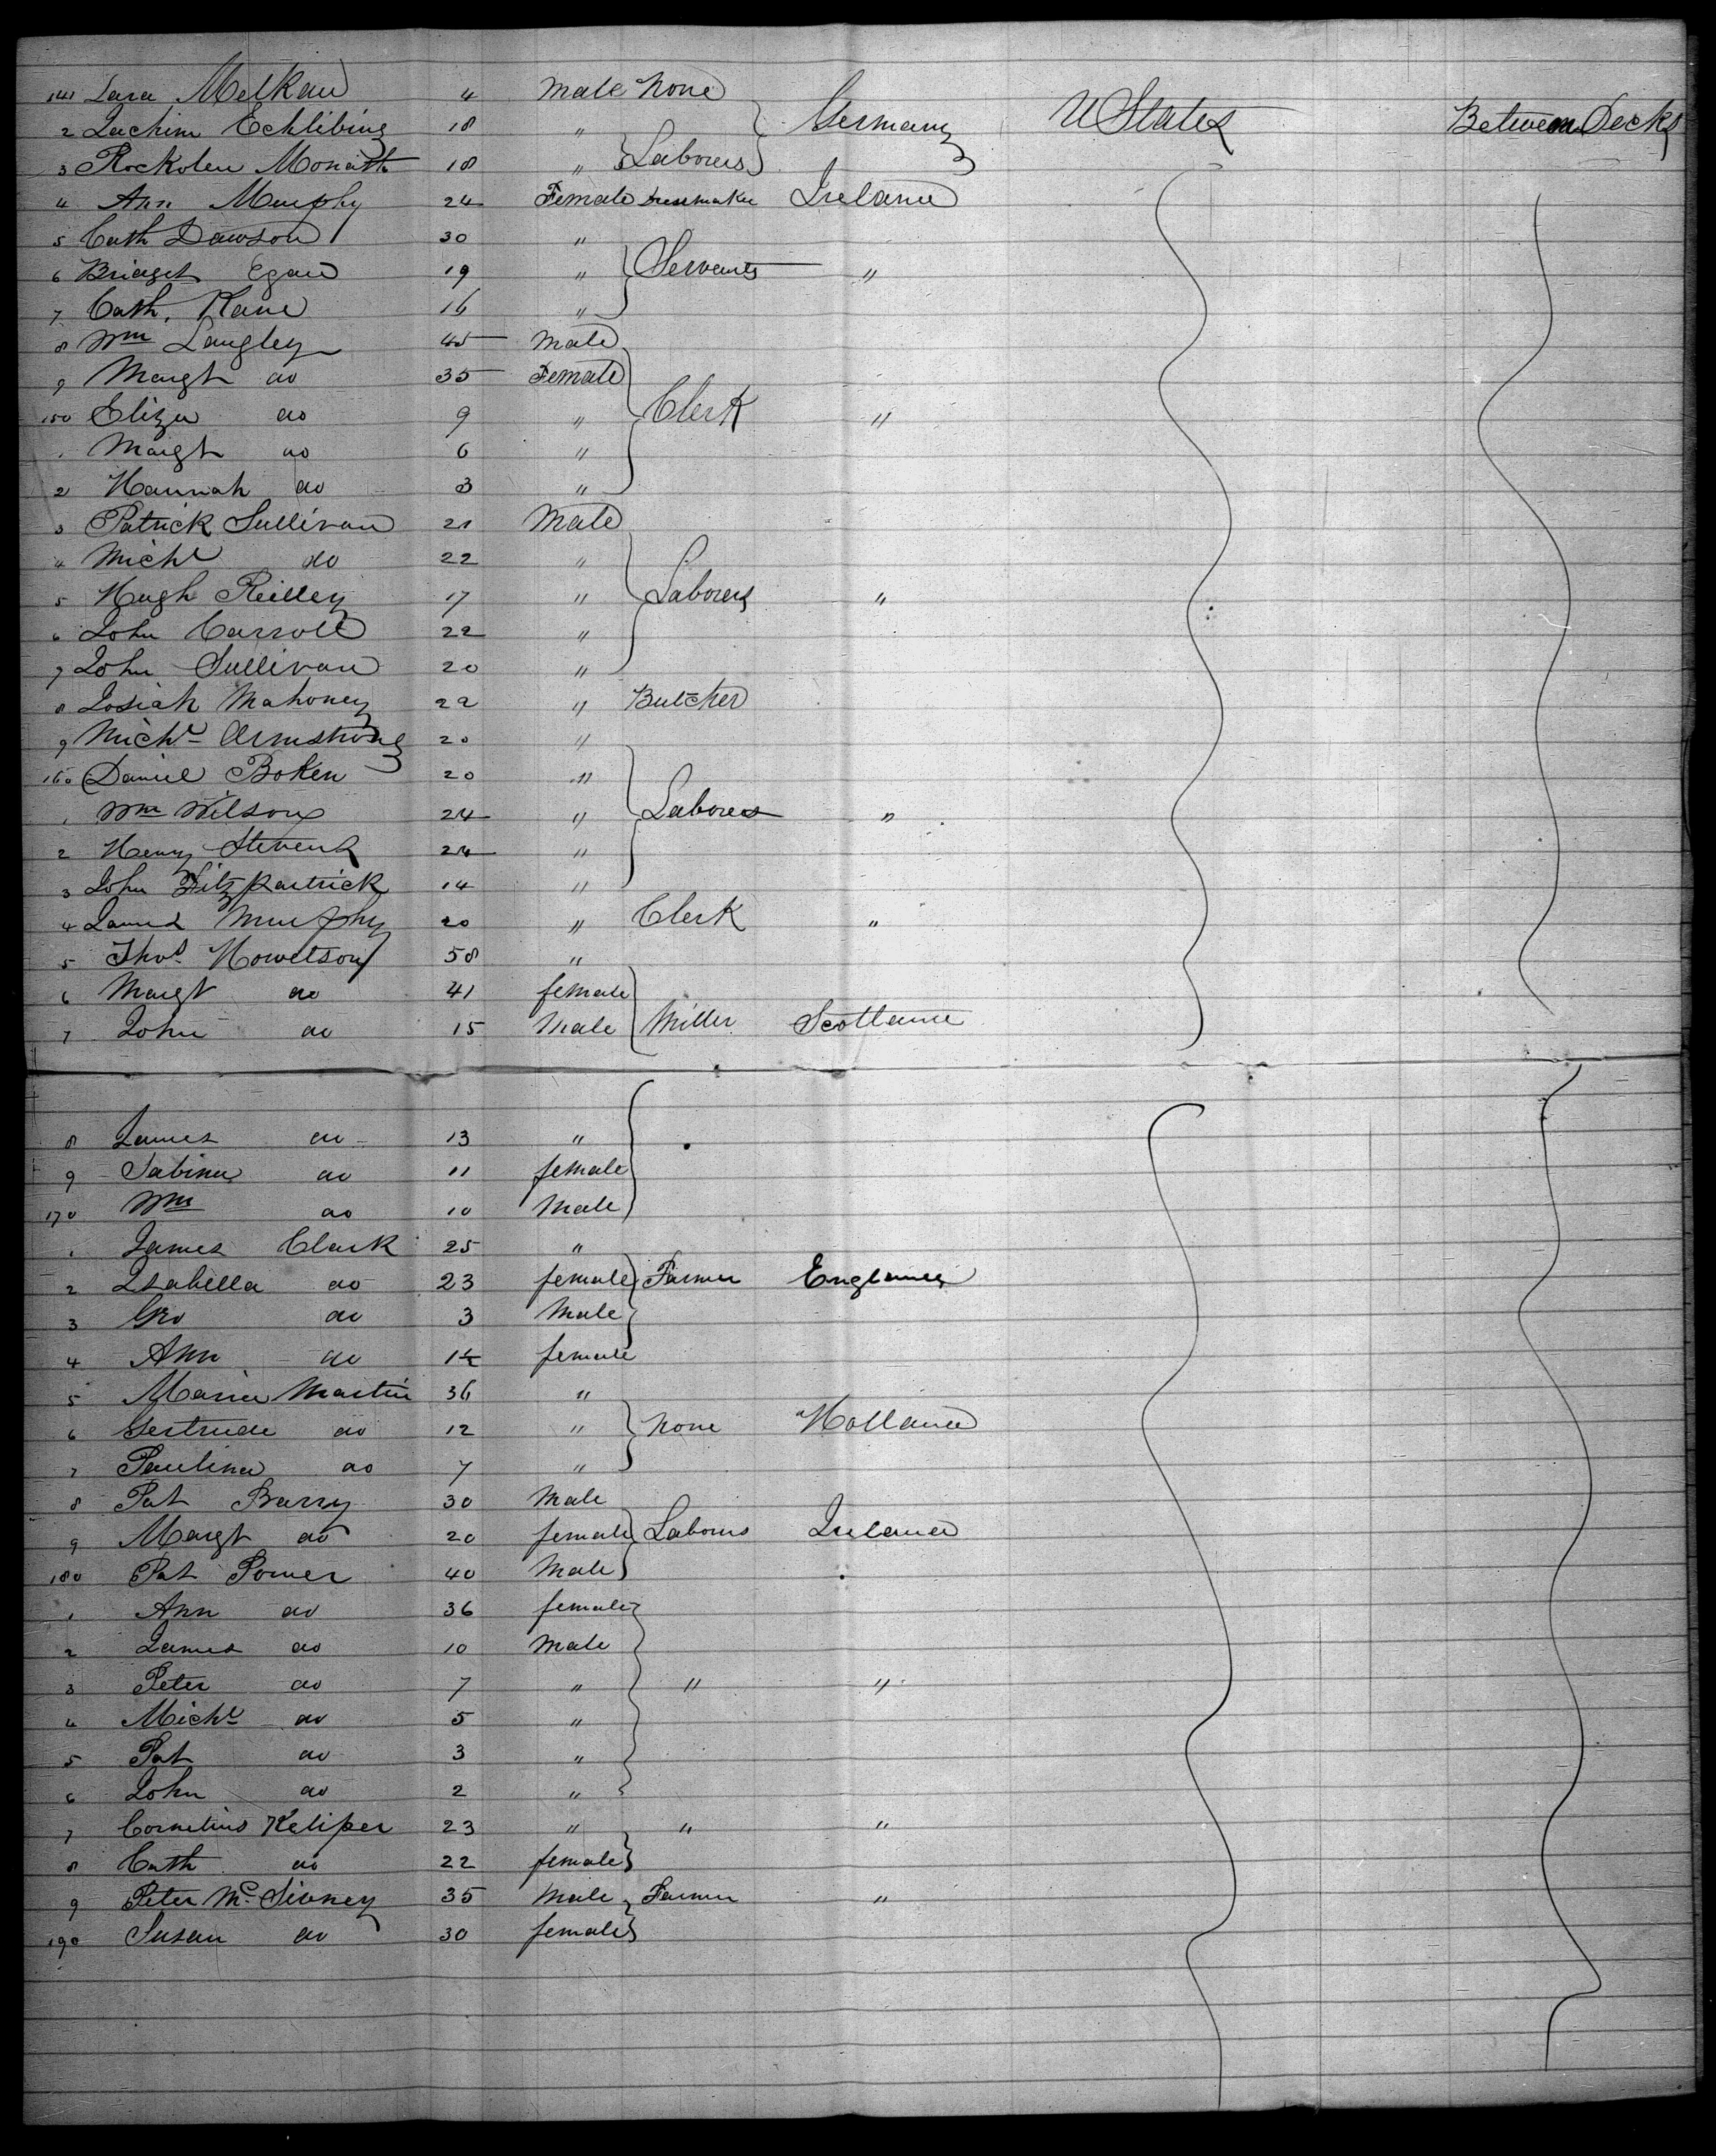 141 Lara Melkau 4 Male None
2 Jachim Echlibing 18 " Germany U States Between Decks
3 Rockolen Monath 18 " Laborers
4 Ann Murphy 24 Female Dressmaker Ireland
5 Cath Dawson 30 "
6 Bridget Egan 19 " Servants "
7 Cath. Kane 16 "
8 Wm Langley 45 Male
9 Margt do 35 Female
150 Eliza do 9 " Clerk "
1 Margt do 6 "
2 Hannah do 3 "
3 Patrick Sullivan 21 Male
4 Michl do 22 "
5 Hugh Reilley 17 " Laborers "
6 John Carroll 22 "
7 John Sullivan 20 "
8 Josiah Mahoney 22 " Butcher
9 Michl Armstrong 20 "
160 Daniel Boken 20 "
1 Wm Wilson 24 " Laborers "
2 Henry Stevens 24 "
3 John Fitzpartrick 14 "
4 James Murphy 20 " Clerk "
5 Thos Howetson 58 "
6 Margt do 41 female
7 John do 15 Male Miller Scotland
8 James do 13 "
9 Sabina do 11 female
170 Wm do 10 Male
1 James Clark 25 "
2 Isabella do 23 female Farmer England
3 Geo do 3 Male
4 Ann do female
5 Maria Martin 36 "
6 Gertrude do 12 " None Holland
7 Paulina do 7 "
8 Pat Barry 30 Male
9 Margt do 20 female Laborers Ireland
180 Pat Power 40 Male
1 Ann do 36 female
2 James do 10 Male
3 Peter do 7 " " "
4 Michl do 5 "
5 Pat do 3 "
6 John do 2 "
7 Cornelius Keliper 23 " " "
8 Cath do 22 female
9 Peter Mc Sivney 35 Male Farmer "
190 Susan do 30 female